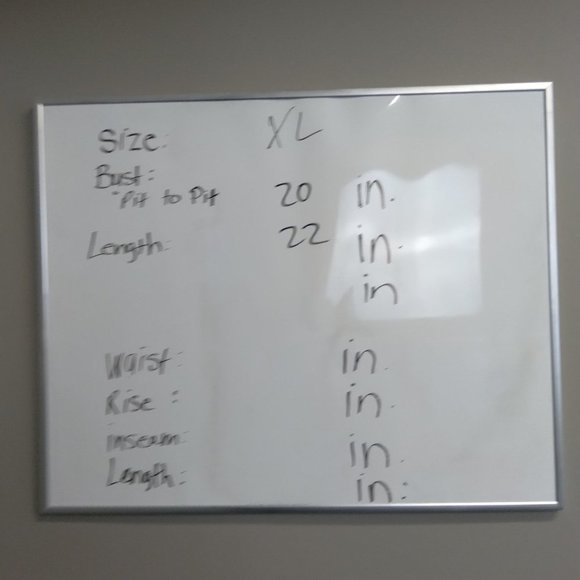 Size: XL
Bust:
"Pit to Pit 20 in.
Length: 22 in.
in
Waist: in.
Rise: in.
inseam: in.
Length: in: